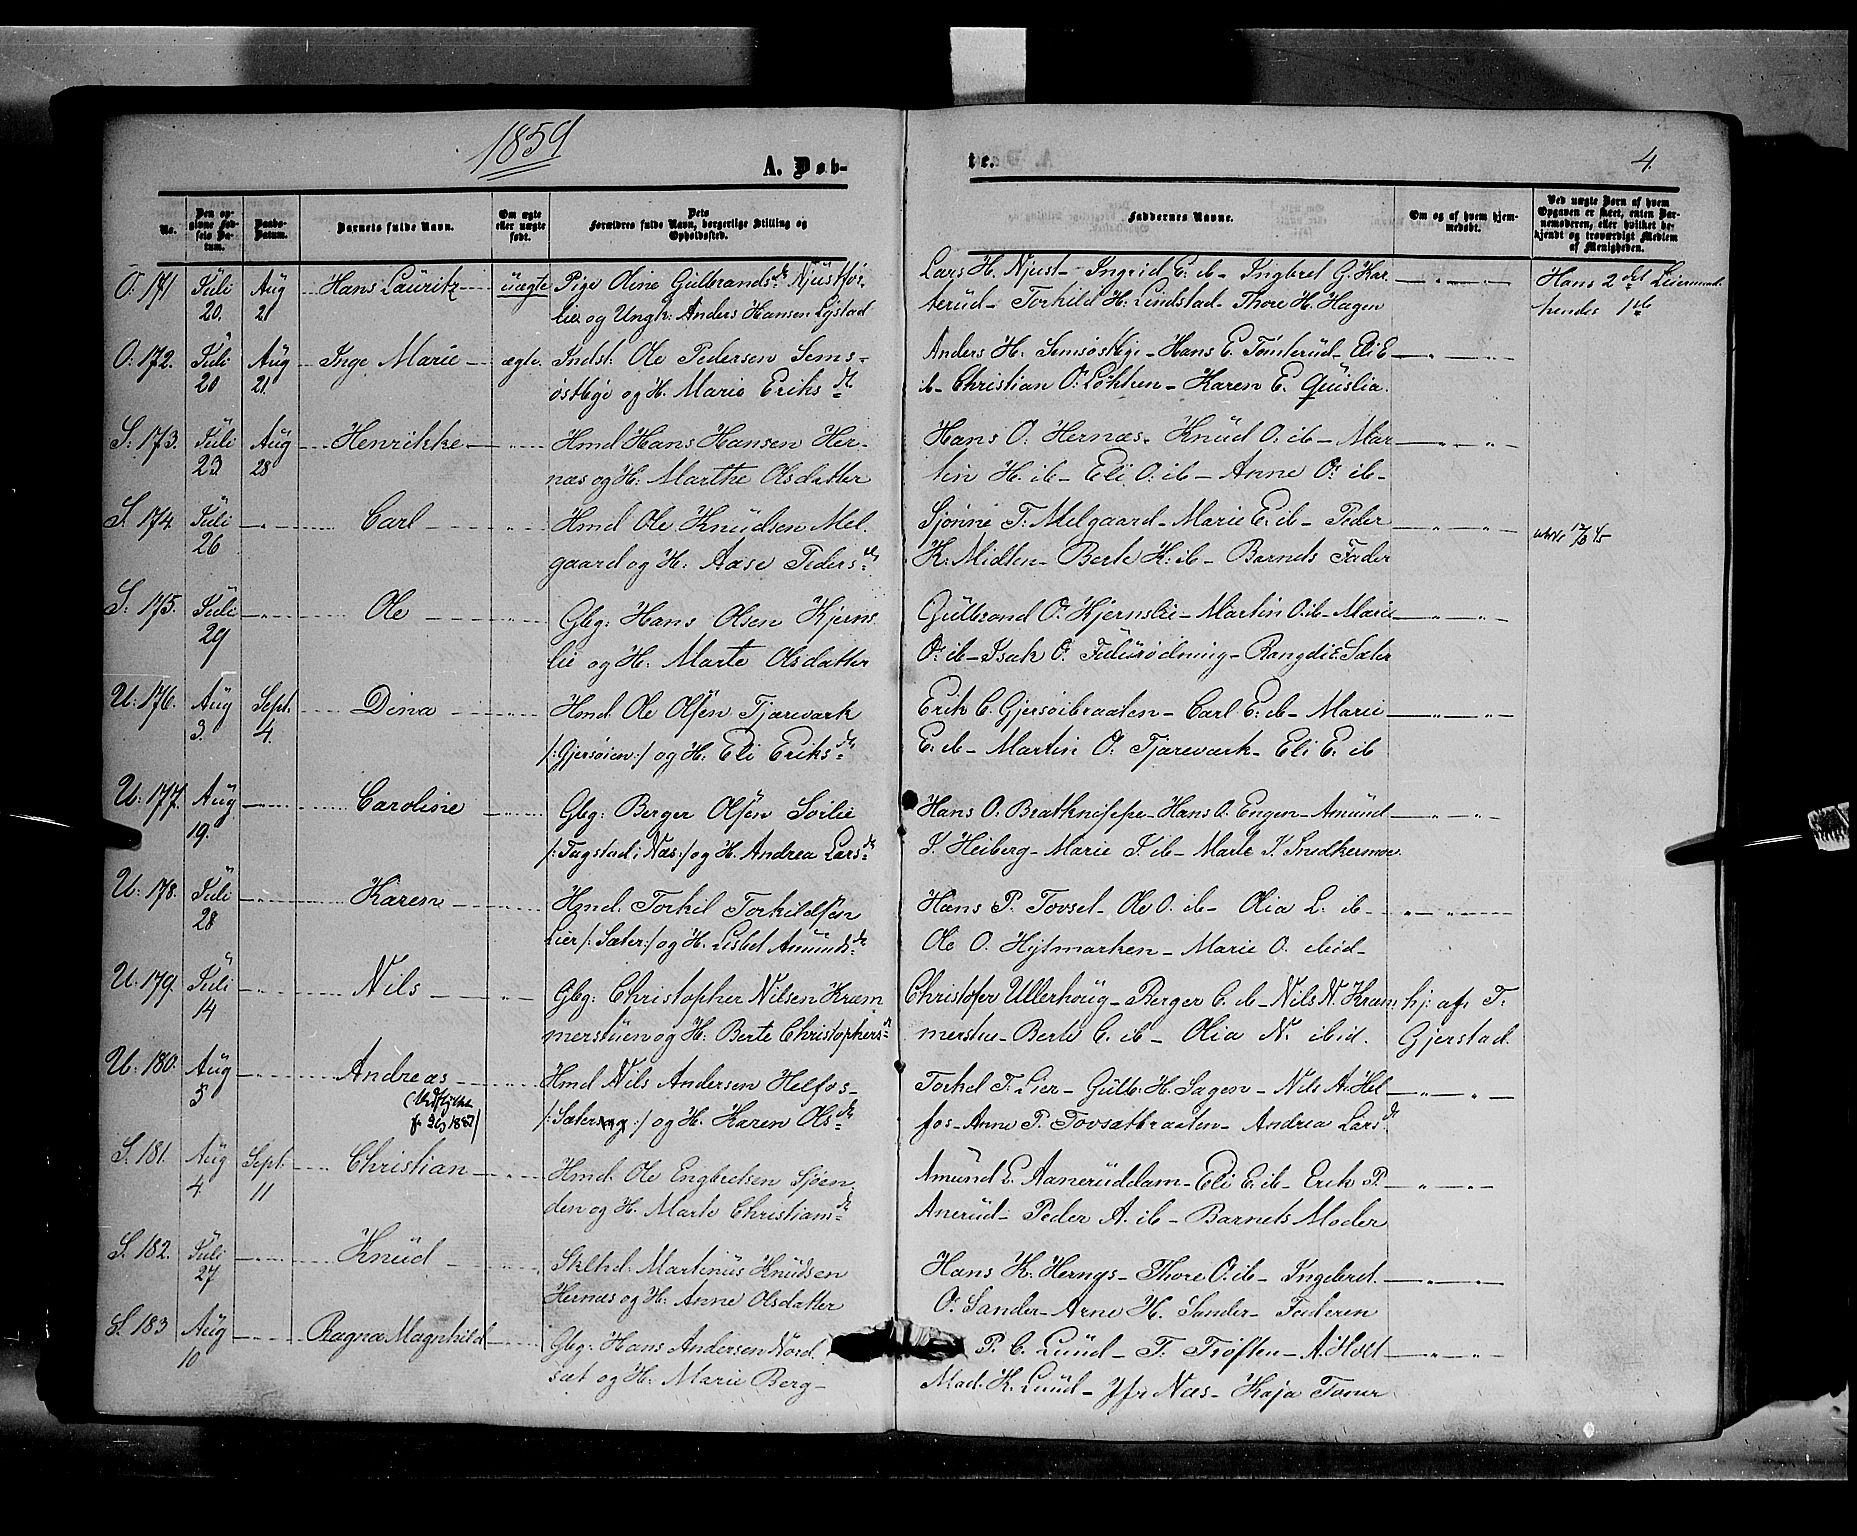 1859
A. Døb-
te.
4.
No.
Den op-
givne Fød-
sels Da-
tum.
Daabs-
Datum.
Barnets fulde Navn.
Om ægte
eller uægte
født.
Dets
Forældres fulde Navn, borgerlige Stilling og
Opholdssted.
Faddernes Navne.
Om og af hvem hjem-
medøbt.
Ved uægte Børn af hvem
Opgaven er skeet, enten Bar-
nemoderen, eller hvilket be-
kjendt og troværdigt Medlem
af Menigheden.
O: 171 Juli 20. Aug 21 Hans Lauritz uægte Pige Oline Gulbrandsdr Njustfor-
lie og Ungk: Anders Hansen Lystad
Lars H. Njust - Ingrid E: ib - Ingbret G. Kar-
terud - Torkild H. Lindstad - Thore H. Hagen
Hans 2det Leiermaal
hendes 1ste
O: 172. Juli 20 Aug 21. Inge Marie ægte. Indst: Ole Pedersen Sems-
østhye og H. Marie Eriksdr
Anders H. Semsøsthye - Hans E. Tomterud - Eli E
ib - Christian O. Løkken - Karen E. Quislia.
S: 173. Juli 23 Aug 28 Henrikke Hmd Hans Hansen Her-
næs og H: Marthe Olsdatter
Hans O. Hernæs - Knud O. ib - Mar
tin H. ib - Eli O. ib - Anne O. ib -
S. 174. Juli 26 Carl Hmd Ole Knudsen Mel
gaard og H: Aase Pedersdr
Sjønne T. Melgaard - Marie E. ib - Peder
K. Midten - Berte K. ib - Barnets Fader
S. 175. Juli 29 Ole Gbg: Hans Olsen Kjerns
lie og H: Marte Olsdatter
Gulbrand O. Kjernslie - Martin O. ib - Marie
O. ib - Isak O. Fulurødning - Rangdi E. Sæter
U: 176. Aug 3. Sept. 4. Dina Hmd. Ole Olsen Tjærevark
/: Gjersøien :/ og H: Eli Eriksdr
Erik C. Gjersøibraaten - Carl E. ib - Marie
E: ib - Martin O. Tjærevark - Eli E. ib
U. 177. Aug 19. Caroline Gbg: Berger Olsen Sorlie
/: Fagstad i Næs :/ og H. Andrea Larsdr
Hans O. Bratknippe - Hans O. Engen - Amund
J. Heiberg - Marie J. ib - Marte J. Snedkermoe.
U. 178. Juli 28 Karen Hmd. Torkil Torkildsen
Lier /: Sæter :/ og H. Lisbet Amundsdr
Hans P. Tovset - Ole O. ib - Olia L. ib -
Ole O. Hytmarken - Marie O. ibid -
U. 179. Juli 14 Nils Gbg: Christopher Nilsen Kram
merstuen og H: Berte Christophersdr
Christofer Ullerhoug - Berger C. ib - Nils N. Kram
merstue - Berte C. ib - Olia N. ibid.
hj: af: T.
Gjerstad.
U. 180. Aug 5 Andreas Hmd Nils Andersen Helfos -
/: Sæter :/ og H: Karen Olsdr
Torkel T. Lier - Gulb: H. Sagen - Nils A. Hel-
fos - Anne P. Tovsætbraaten - Andrea Larsdr
S. 181. Aug 4. Sept. 11 Christian Hmd. Ole Engbretsen Sjøen
den og H. Marte Christiansdr
Amund E. Aaneruddam - Eli E. ib - Erik P.
Anerud - Peder A. ib - Barnets Moder
S. 182. Juli 27 Knud Martinus Knudsen
Hernæs og H: Anne Olsdatter
Hans K. Hernæs - Thore O. ib - Ingebret
O. Sander - Arne H. Sander - Faderen
S. 183 Aug 10 Ragna Magnhild Gbg: Hans Andersen Nord
sæt og H: Marie Berg -
P. C. Luud - T. Trøften - A. Holt
Mad. K. Luud - Jfr Næs - Kaja